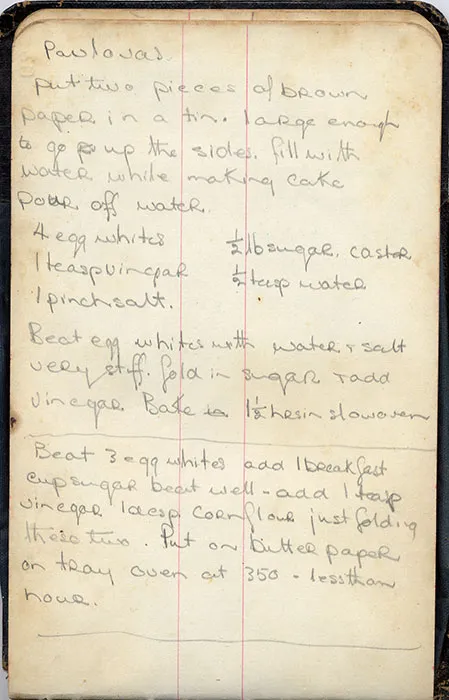 Pavlovas.
put two pieces of brown
paper in a tin. large enough
to go up the sides. fill with
water while making cake
pour off water.
4 egg whites ½ lb sugar. caster
1 teasp vinegar ½ teasp water
1 pinch salt.
Beat egg whites with water + salt
very stiff. fold in sugar + add
vinegar Bake 1½ hrs in slow oven
Beat 3 egg whites add 1 breakfast
cup sugar beat well - add 1 teasp
vinegar 1 desp cornflour just folding
these two. Put on butter paper
on tray oven at 350 - less than
hour.